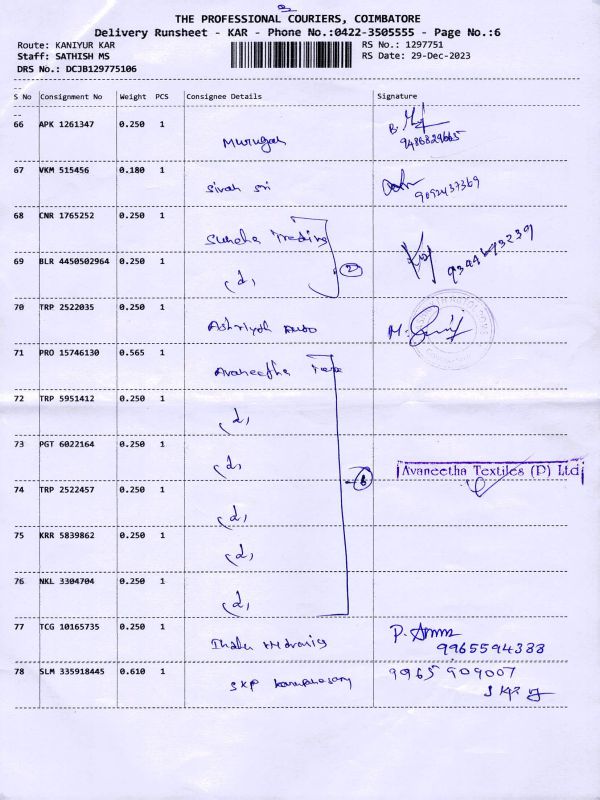 THE PROFESSIONAL COURIERS, COIMBATORE
Delivery Runsheet - KAR - Phone No.:0422-3505555 - Page No.:6
Route: KANIYUR KAR RS No.: 1297751
Staff: SATHISH MS RS Date: 29-Dec-2023
DRS No.: DCJB129775106
S No Consignment No Weight PCS Consignee Details Signature
66 APK 1261347 0.250 1
Murugan
67 VKM 515456 0.180 1
Sivah Sri 9092437369
68 CNR 1765252 0.250 1
Trading
69 BLR 4450502964 0.250 1
(d, 2
70 TRP 2522035 0.250 1
M.
71 PRO 15746130 0.565 1
Avaneetha
72 TRP 5951412 0.250 1
(d,
73 PGT 6022164 0.250 1
(d, Avaneetha Textiles (P) Ltd
74 TRP 2522457 0.250 1 6
(d,
75 KRR 5839862 0.250 1
(d,
76 NKL 3304704 0.250 1
(d,
77 TCG 10165735 0.250 1 P.
9965594388
78 SLM 335918445 0.610 1 9965909007
SKP